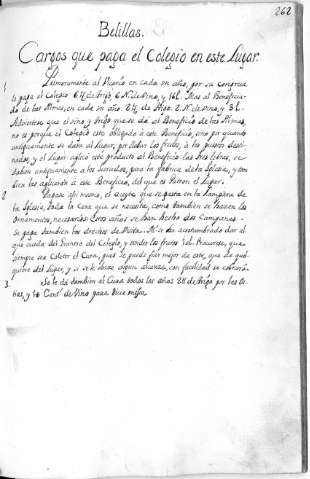 262
Belillas.
Cargos que paga el Colegio en este Lugar.
1 Primeramente al Vicario en cada un año, por su congrua
le paga el Colegio de trigo, de vino, y Mas al Beneficia-
do de las Almas, en cada un año, de trigo, de vino, y
Adviertese que el vino y trigo que se dá al Beneficio de las Almas,
no es porque el Colegio esté obligado á este Beneficio, sino por quanto
antiguamente se daba al Lugar, por los frutos, á los puestos desti-
nados, y el Lugar aplicó este producto al Beneficio: las tres libras, se
daban antiguamente á los Jurados, para la fabrica de la Iglesia, y tam-
bien las aplicaron á este Beneficio, del que es Patron el Lugar.
2 Pagase assi mesmo, el aceyte que se gasta en la Lampara de
la Iglesia, toda la cera que se necesita, como tambien se hacen los
ornamentos, necesarios. Estos años se han hecho dos Campanas.
Se paga tambien los drechos de Visita. se ha acostumbrado dar al
que cuida del Granero del Colegio, y vender los frutos Procurese, que
siempre sea Colector el Cura, pues se puede fiar mejor de este, que de qual-
quiere del Lugar, y si se le diesse alguna alianza, con facilidad se cobrará.
3 Se le dá tambien al Cura todos los años de trigo por las
y de vino para dicir missa.